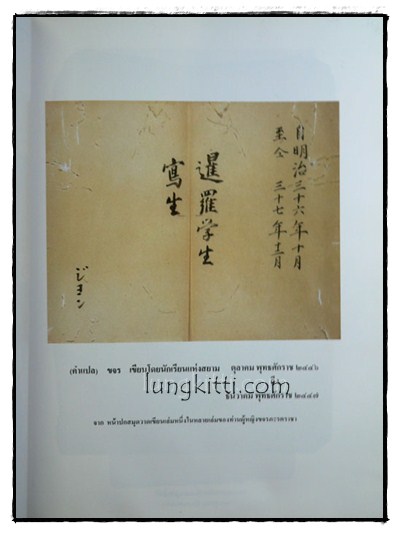 自明治三十六年十月
至仝 三十七年十二月
暹羅学生
寫生
ジヨン
(คำแปล) ขจร เขียนโดยนักเรียนแห่งสยาม ตุลาคม พุทธศักราช ๒๔๔๖
ถึง
ธันวาคม พุทธศักราช ๒๔๔๗
lungkitti.com
จาก หน้าปกสมุดวาดเขียนเล่มหนึ่งในหลายเล่มของท่านผู้หญิงขจรภะรตราชา